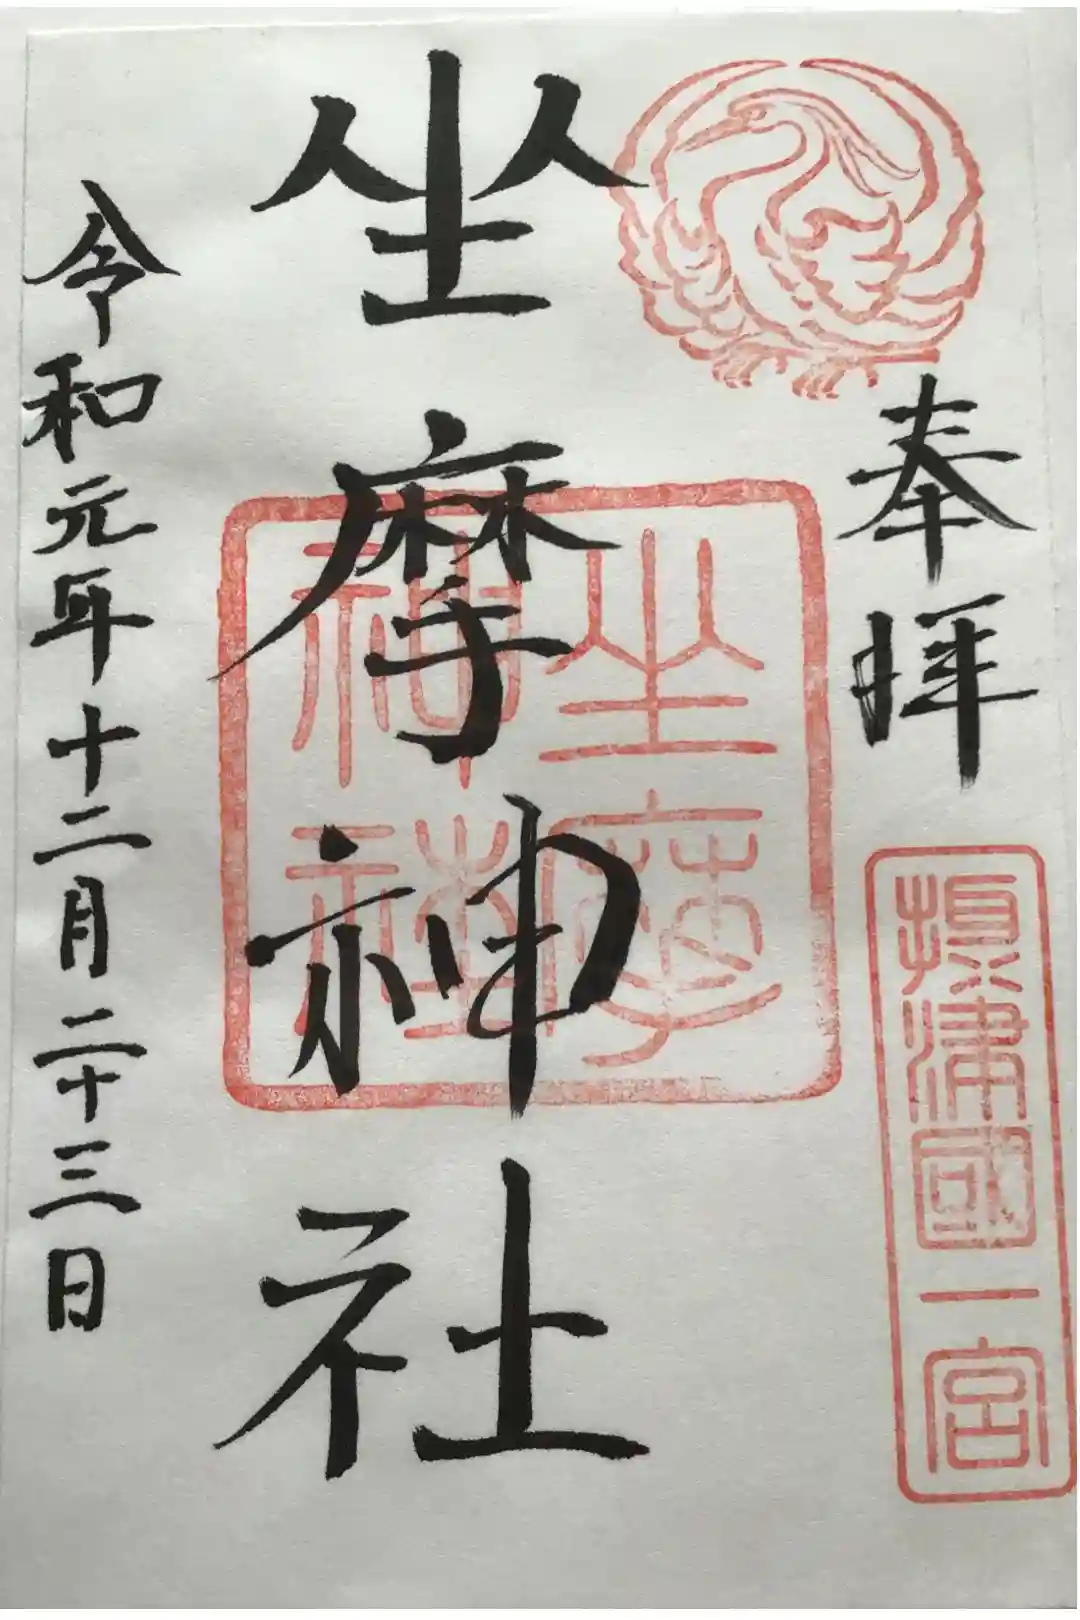 奉拝
攝津國一宮
坐摩神社
坐摩
神社
令和元年十二月二十三日